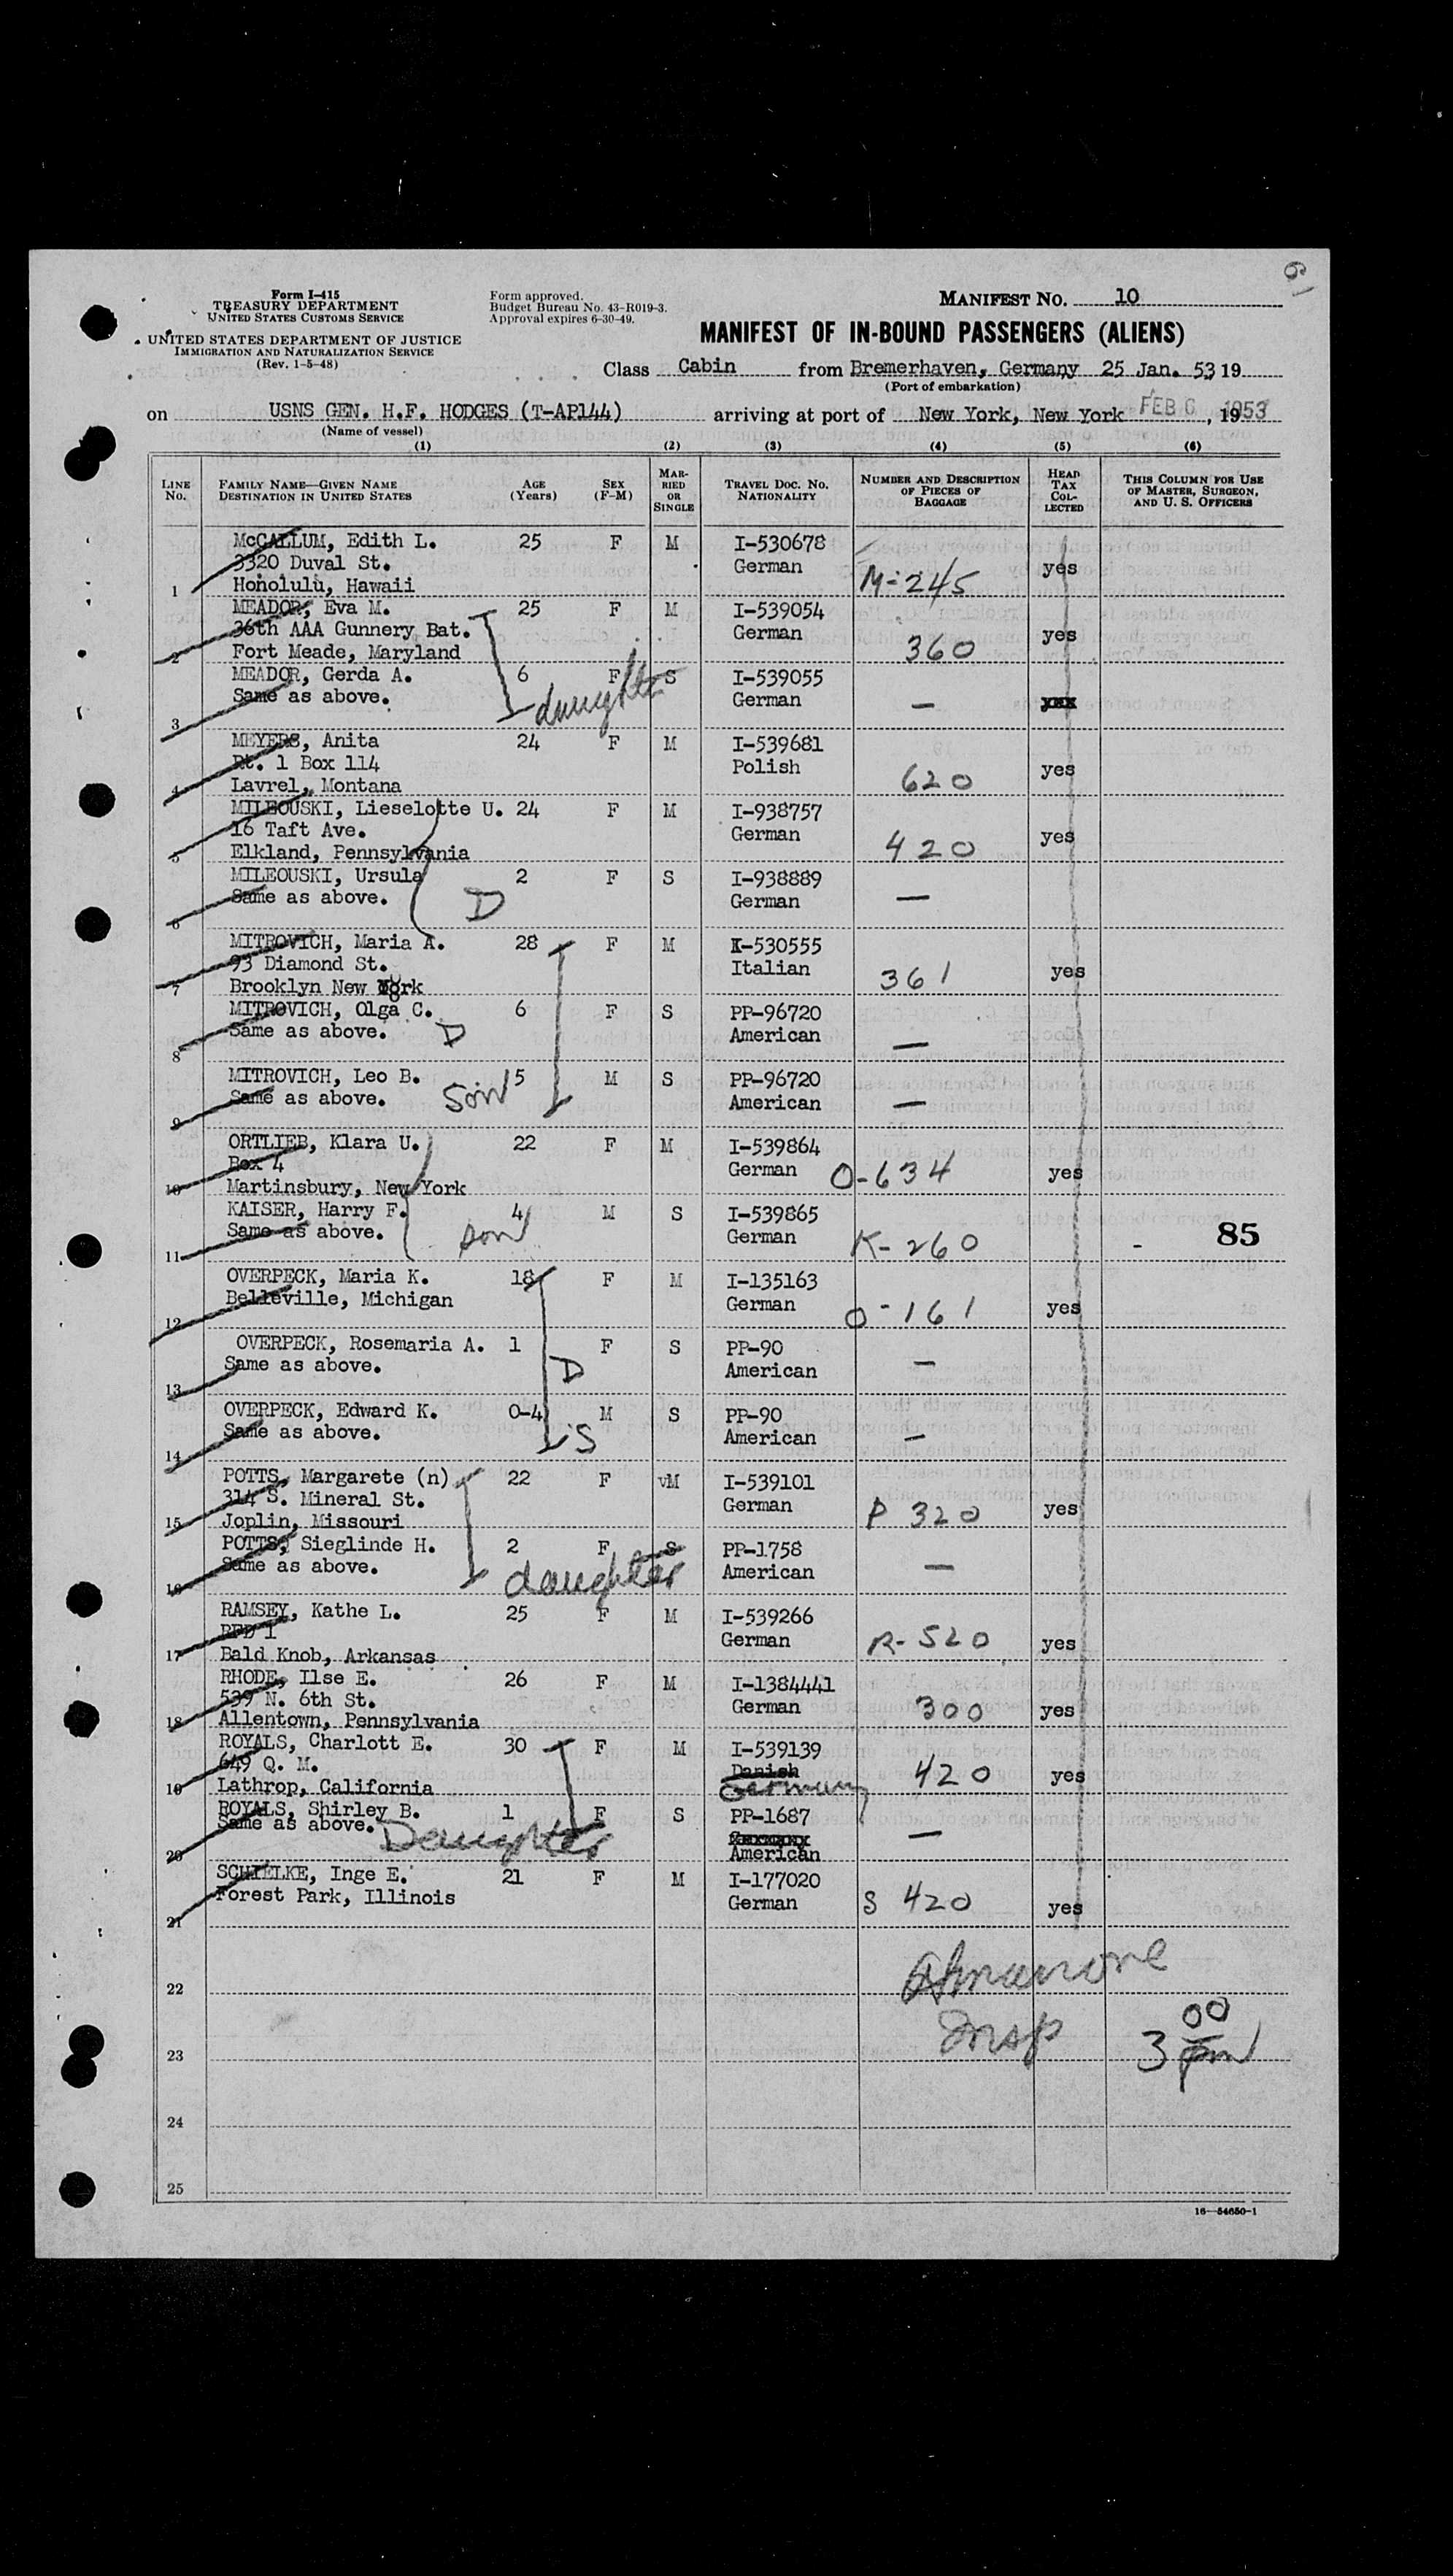 61
Form I-415
TREASURY DEPARTMENT
UNITED STATES CUSTOMS SERVICE
UNITED STATES DEPARTMENT OF JUSTICE
IMMIGRATION AND NATURALIZATION SERVICE
(Rev. 1-5-48)
Form approved.
Budget Bureau No. 43-R019-3.
Approval expires 6-30-49.
MANIFEST NO. 10
MANIFEST OF IN-BOUND PASSENGERS (ALIENS)
Class Cabin from Bremerhaven, Germany 25 Jan. 53 19
(Port of embarkation)
on USNS GEN. H.F. HODGES (T-AP144) arriving at port of New York, New York FEB 6 1953, 19
(Name of vessel)
(1) (2) (3) (4) (5) (6)
LINE NO. FAMILY NAME—GIVEN NAME DESTINATION IN UNITED STATES AGE (YEARS) SEX (F-M) MARRIED OR SINGLE TRAVEL DOC. NO. NATIONALITY NUMBER AND DESCRIPTION OF PIECES OF BAGGAGE HEAD TAX COLLECTED THIS COLUMN FOR USE OF MASTER, SURGEON, AND U. S. OFFICERS
McCALLUM, Edith L. 25 F M I-530678
3320 Duval St. German M-245 yes
1 Honolulu, Hawaii
MEADOR, Eva M. 25 F M I-539054
36th AAA Gunnery Bat. German 360 yes
2 Fort Meade, Maryland
MEADOR, Gerda A. 6 F S I-539055
Same as above. daughter German — yes
3
MEYERS, Anita 24 F M I-539681
Rt. 1 Box 114 Polish 620 yes
4 Lavrel, Montana
MILEOUSKI, Lieselotte U. 24 F M I-938757
16 Taft Ave. German 420 yes
5 Elkland, Pennsylvania
MILEOUSKI, Ursula 2 F S I-938889
Same as above. D German —
6
MITROVICH, Maria A. 28 F M I-530555
93 Diamond St. Italian 361 yes
7 Brooklyn New York
MITROVICH, Olga C. 6 F S PP-96720
Same as above. D American —
8
MITROVICH, Leo B. 5 M S PP-96720
Same as above. Son American —
9
ORTLIEB, Klara U. 22 F M I-539864
Box 4 German O-634 yes
10 Martinsbury, New York
KAISER, Harry F. 4 M S I-539865
Same as above. son German K-260 - 85
11
OVERPECK, Maria K. 18 F M I-135163
Belleville, Michigan German O-161 yes
12
OVERPECK, Rosemaria A. 1 F S PP-90
Same as above. D American —
13
OVERPECK, Edward K. 0-4 M S PP-90
Same as above. S American —
14
POTTS, Margarete (n) 22 F vM I-539101
314 S. Mineral St. German P 320 yes
15 Joplin, Missouri
POTTS, Sieglinde H. 2 F S PP-1758
Same as above. daughter American —
16
RAMSEY, Kathe L. 25 F M I-539266
RFD 1 German R-520 yes
17 Bald Knob, Arkansas
RHODE, Ilse E. 26 F M I-1384441
539 N. 6th St. German 300 yes
18 Allentown, Pennsylvania
ROYALS, Charlott E. 30 F M I-539139
649 Q. M. Danish 420 yes
19 Lathrop, California Germany
ROYALS, Shirley B. 1 F S PP-1687
Same as above. Daughter —
20 American
SCHIELKE, Inge E. 21 F M I-177020
Forest Park, Illinois German S 420 yes
21
22
Insp 3 00 pm
23
24
25
16—54650-1